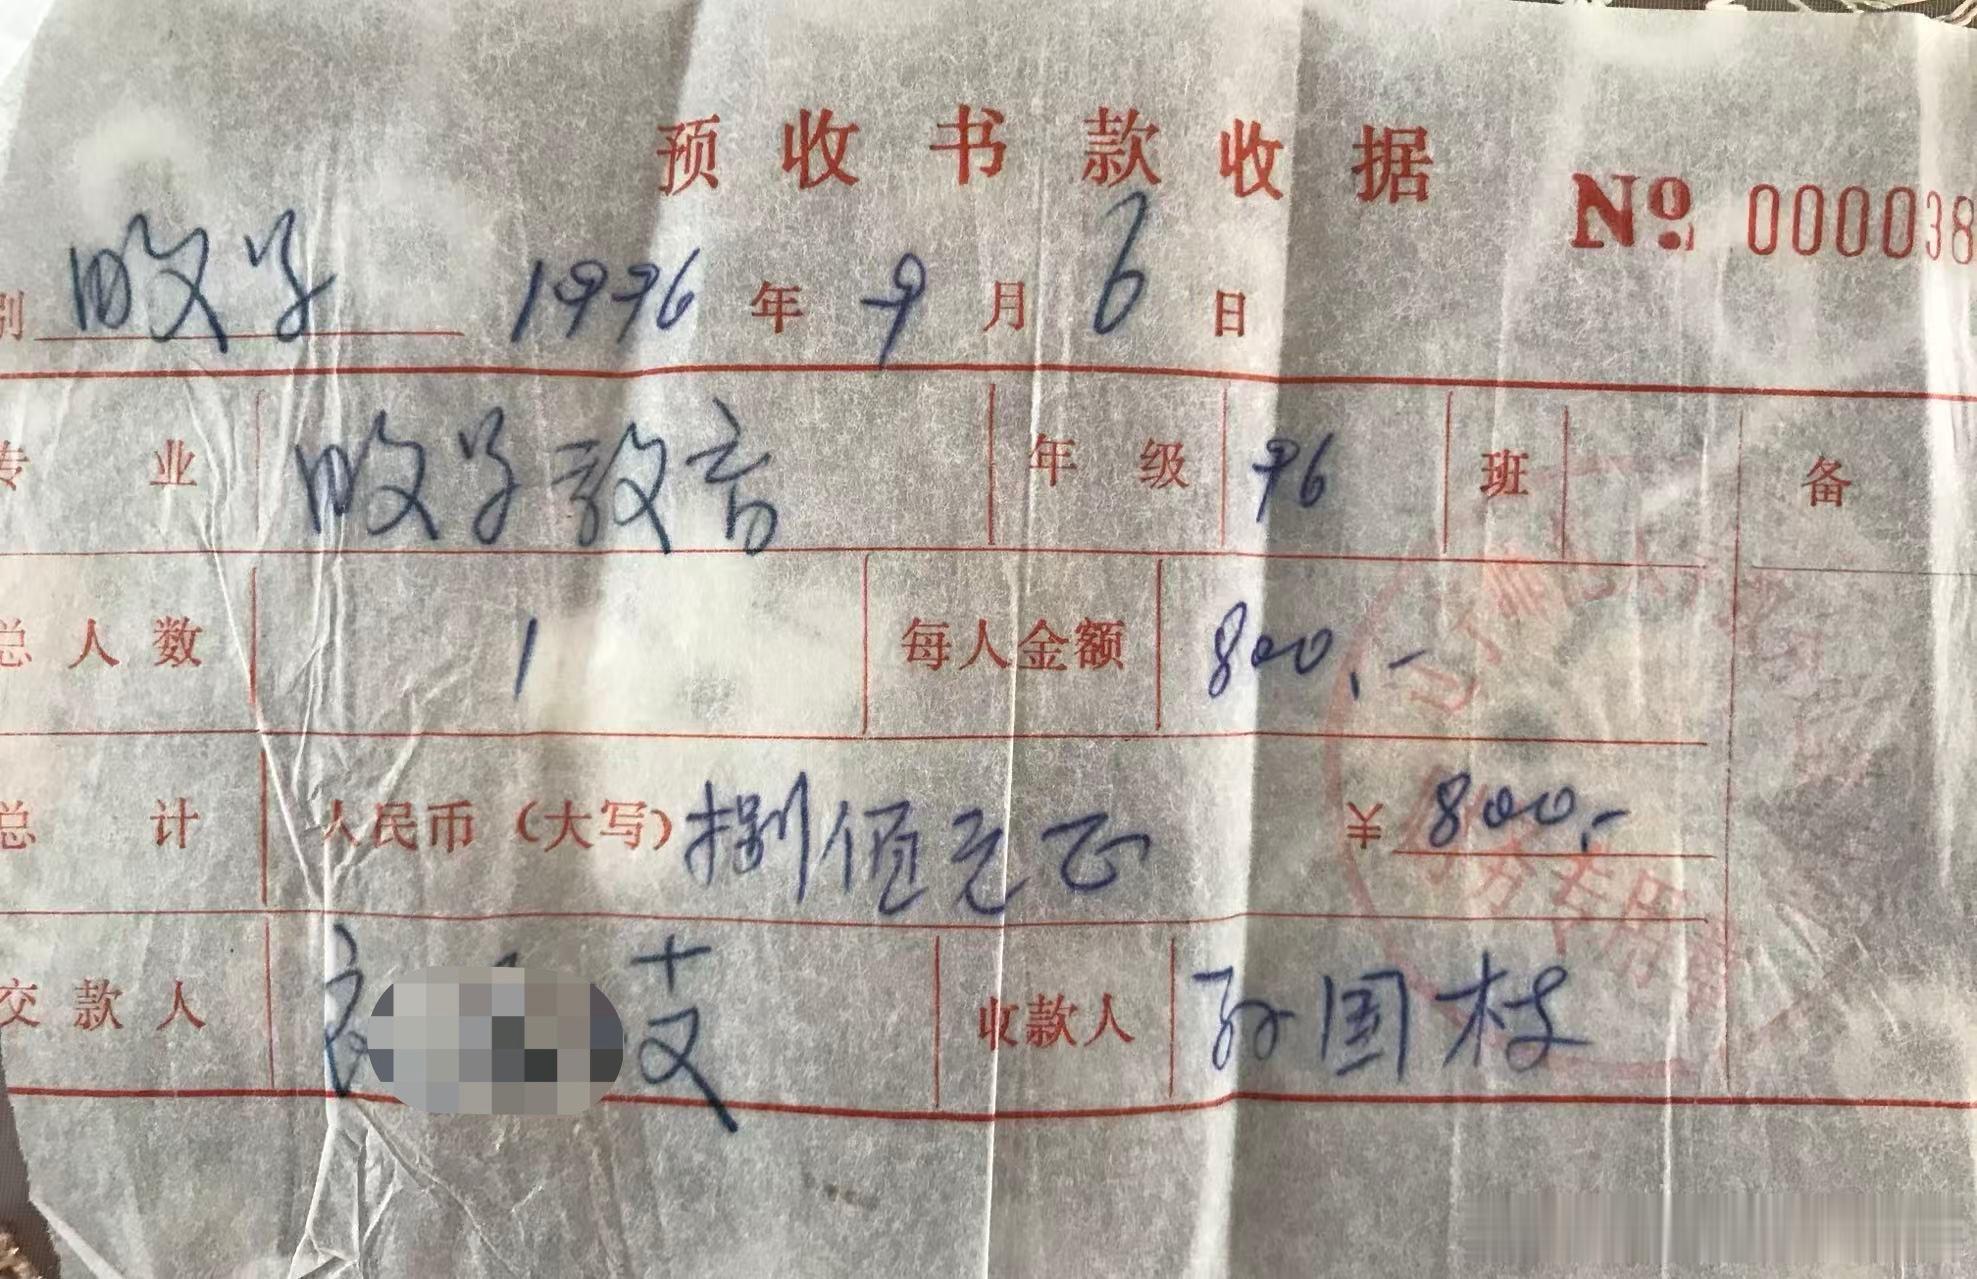 预收书款收据 No 000038
别 政号 1996年9月6日
专业 政号教育 年级 96 班 备
总人数 1 每人金额 800.-
总计 人民币(大写)捌佰元正 ¥800.-
交款人 收款人 孙国
财务专用